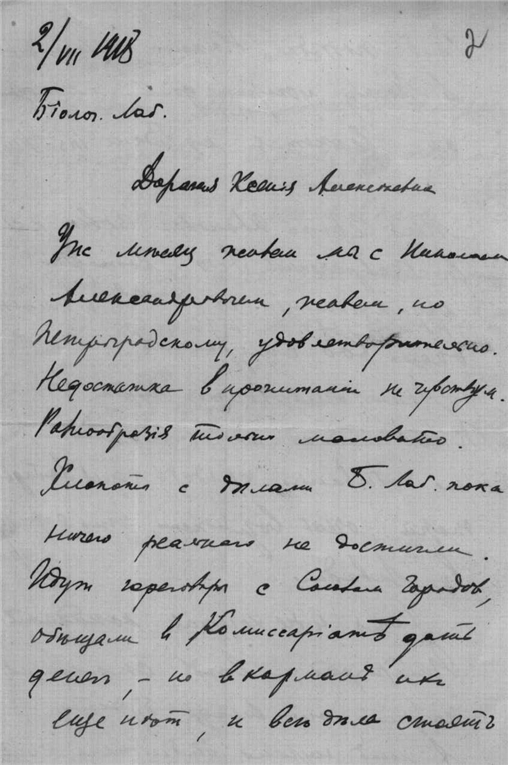 2/VII 1918
2
Бiолог. Лаб.
Дорогая Ксенiя Алексеевна
Уже мѣсяц живем мы с Николаем
Александровичем, живем, по
Петроградскому, удовлетворительно.
Недостатка в пропитанiи не чувствуем.
Разнообразiя только маловато.
Хлопоты с дѣлами Б. Лаб. пока
ничего реального не достигли.
Идут переговоры с Союзом Городов,
обѣщали в Комиссарiатѣ дать
денег, – но в карманѣ их
еще нѣт, и все дѣла стоятъ